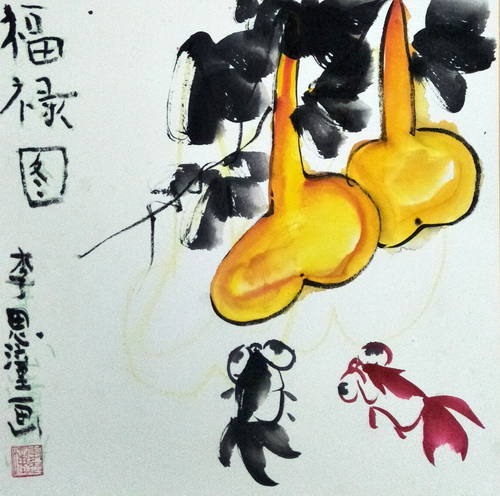 福禄图
李思画